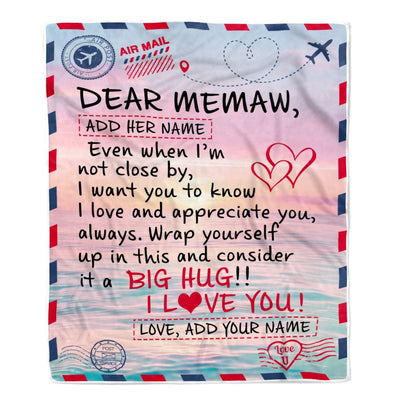 AIR MAIL
DEAR MEMAW,
ADD HER NAME
Even when I'm
not close by,
I want you to know
I love and appreciate you,
always. Wrap yourself
up in this and consider
it a BIG HUG!!
I LOVE YOU!
LOVE, ADD YOUR NAME
POST
Love
U